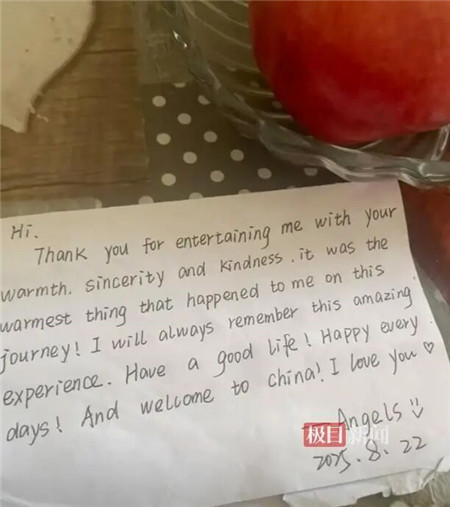 Hi.
Thank you for entertaining me with your
warmth. sincerity and kindness. it was the
warmest thing that happened to me on this
journey! I will always remember this amazing
experience. Have a good life! Happy every
days! And wellcome to china! I love you ♡
Angels
极目新闻
2025.8.22